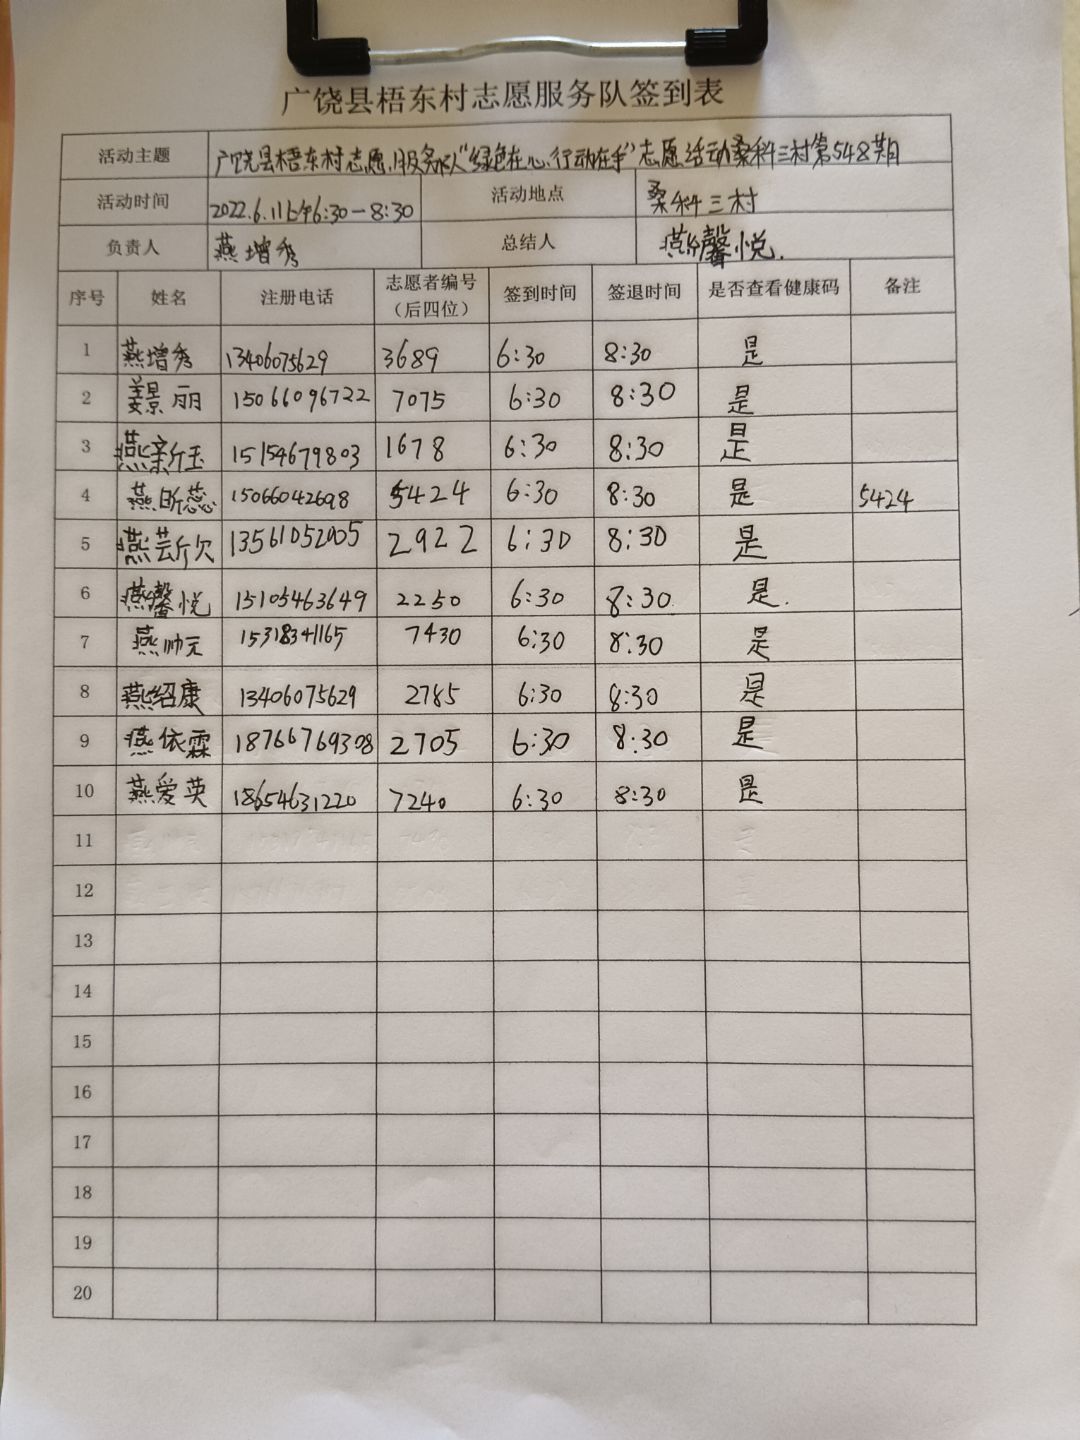 广饶县梧东村志愿服务队签到表
活动主题 广饶县梧东村志愿服务队"绿色在心,行动在手"志愿活动桑科三村第548期
活动时间 2022.6.11上午6:30-8:30 活动地点 桑科三村
负责人 燕增秀 总结人 燕馨悦.
序号 姓名 注册电话 志愿者编号（后四位） 签到时间 签退时间 是否查看健康码 备注
1 燕增秀 13406075629 3689 6:30 8:30 是
2 姜景丽 15066096722 7075 6:30 8:30 是
3 燕新玉 15154679803 1678 6:30 8:30 是
4 燕昕蕊 15066042698 5424 6:30 8:30 是 5424
5 燕芸 13561052005 2922 6:30 8:30 是
6 燕馨悦 15105463649 2250 6:30 8:30 是.
7 燕帅元 15318341165 7430 6:30 8:30 是
8 燕绍康 13406075629 2785 6:30 8:30 是
9 燕依霖 18766769308 2705 6:30 8:30 是
10 燕爱英 18654631220 7240 6:30 8:30 是
11
12
13
14
15
16
17
18
19
20